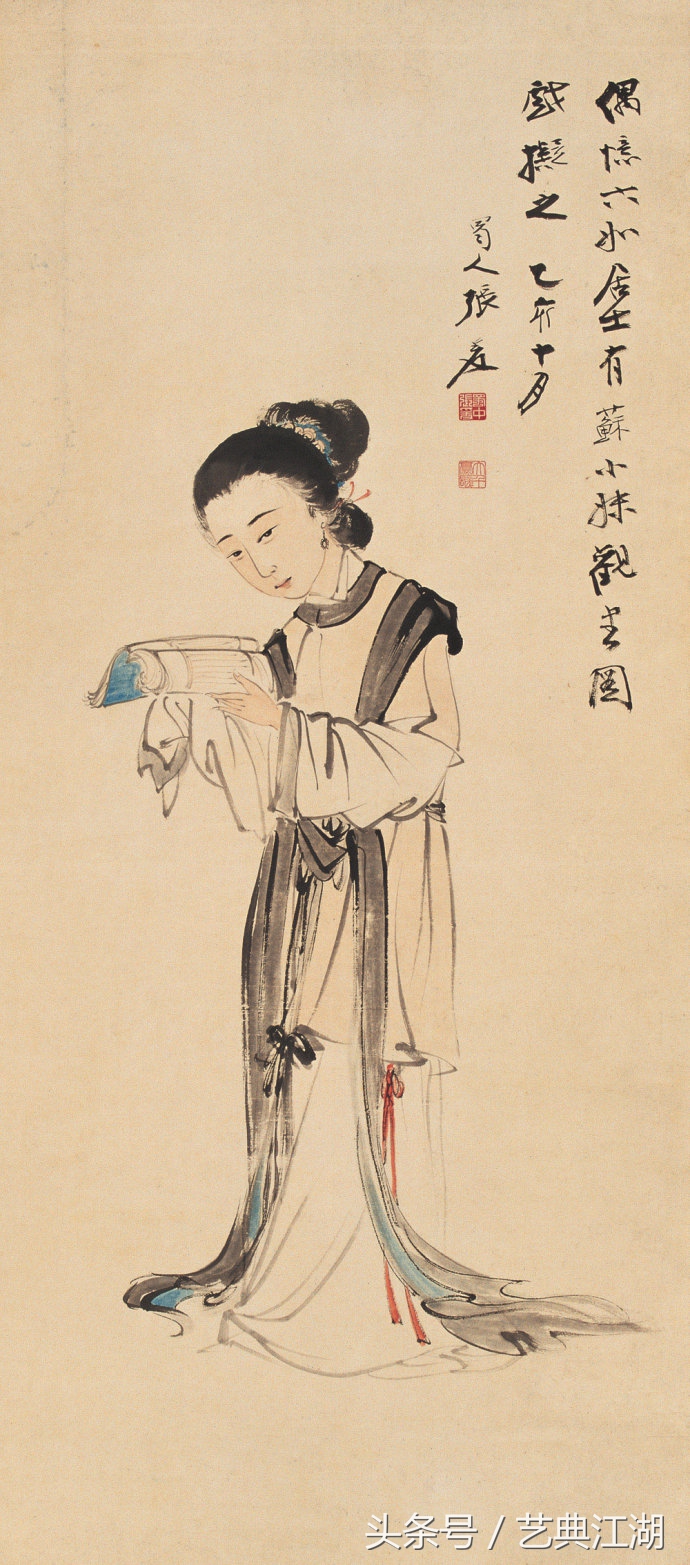 偶憶六如居士有蘇小妹觀書圖
戲擬之 乙亥十月
蜀人張爰
头条号 / 艺典江湖